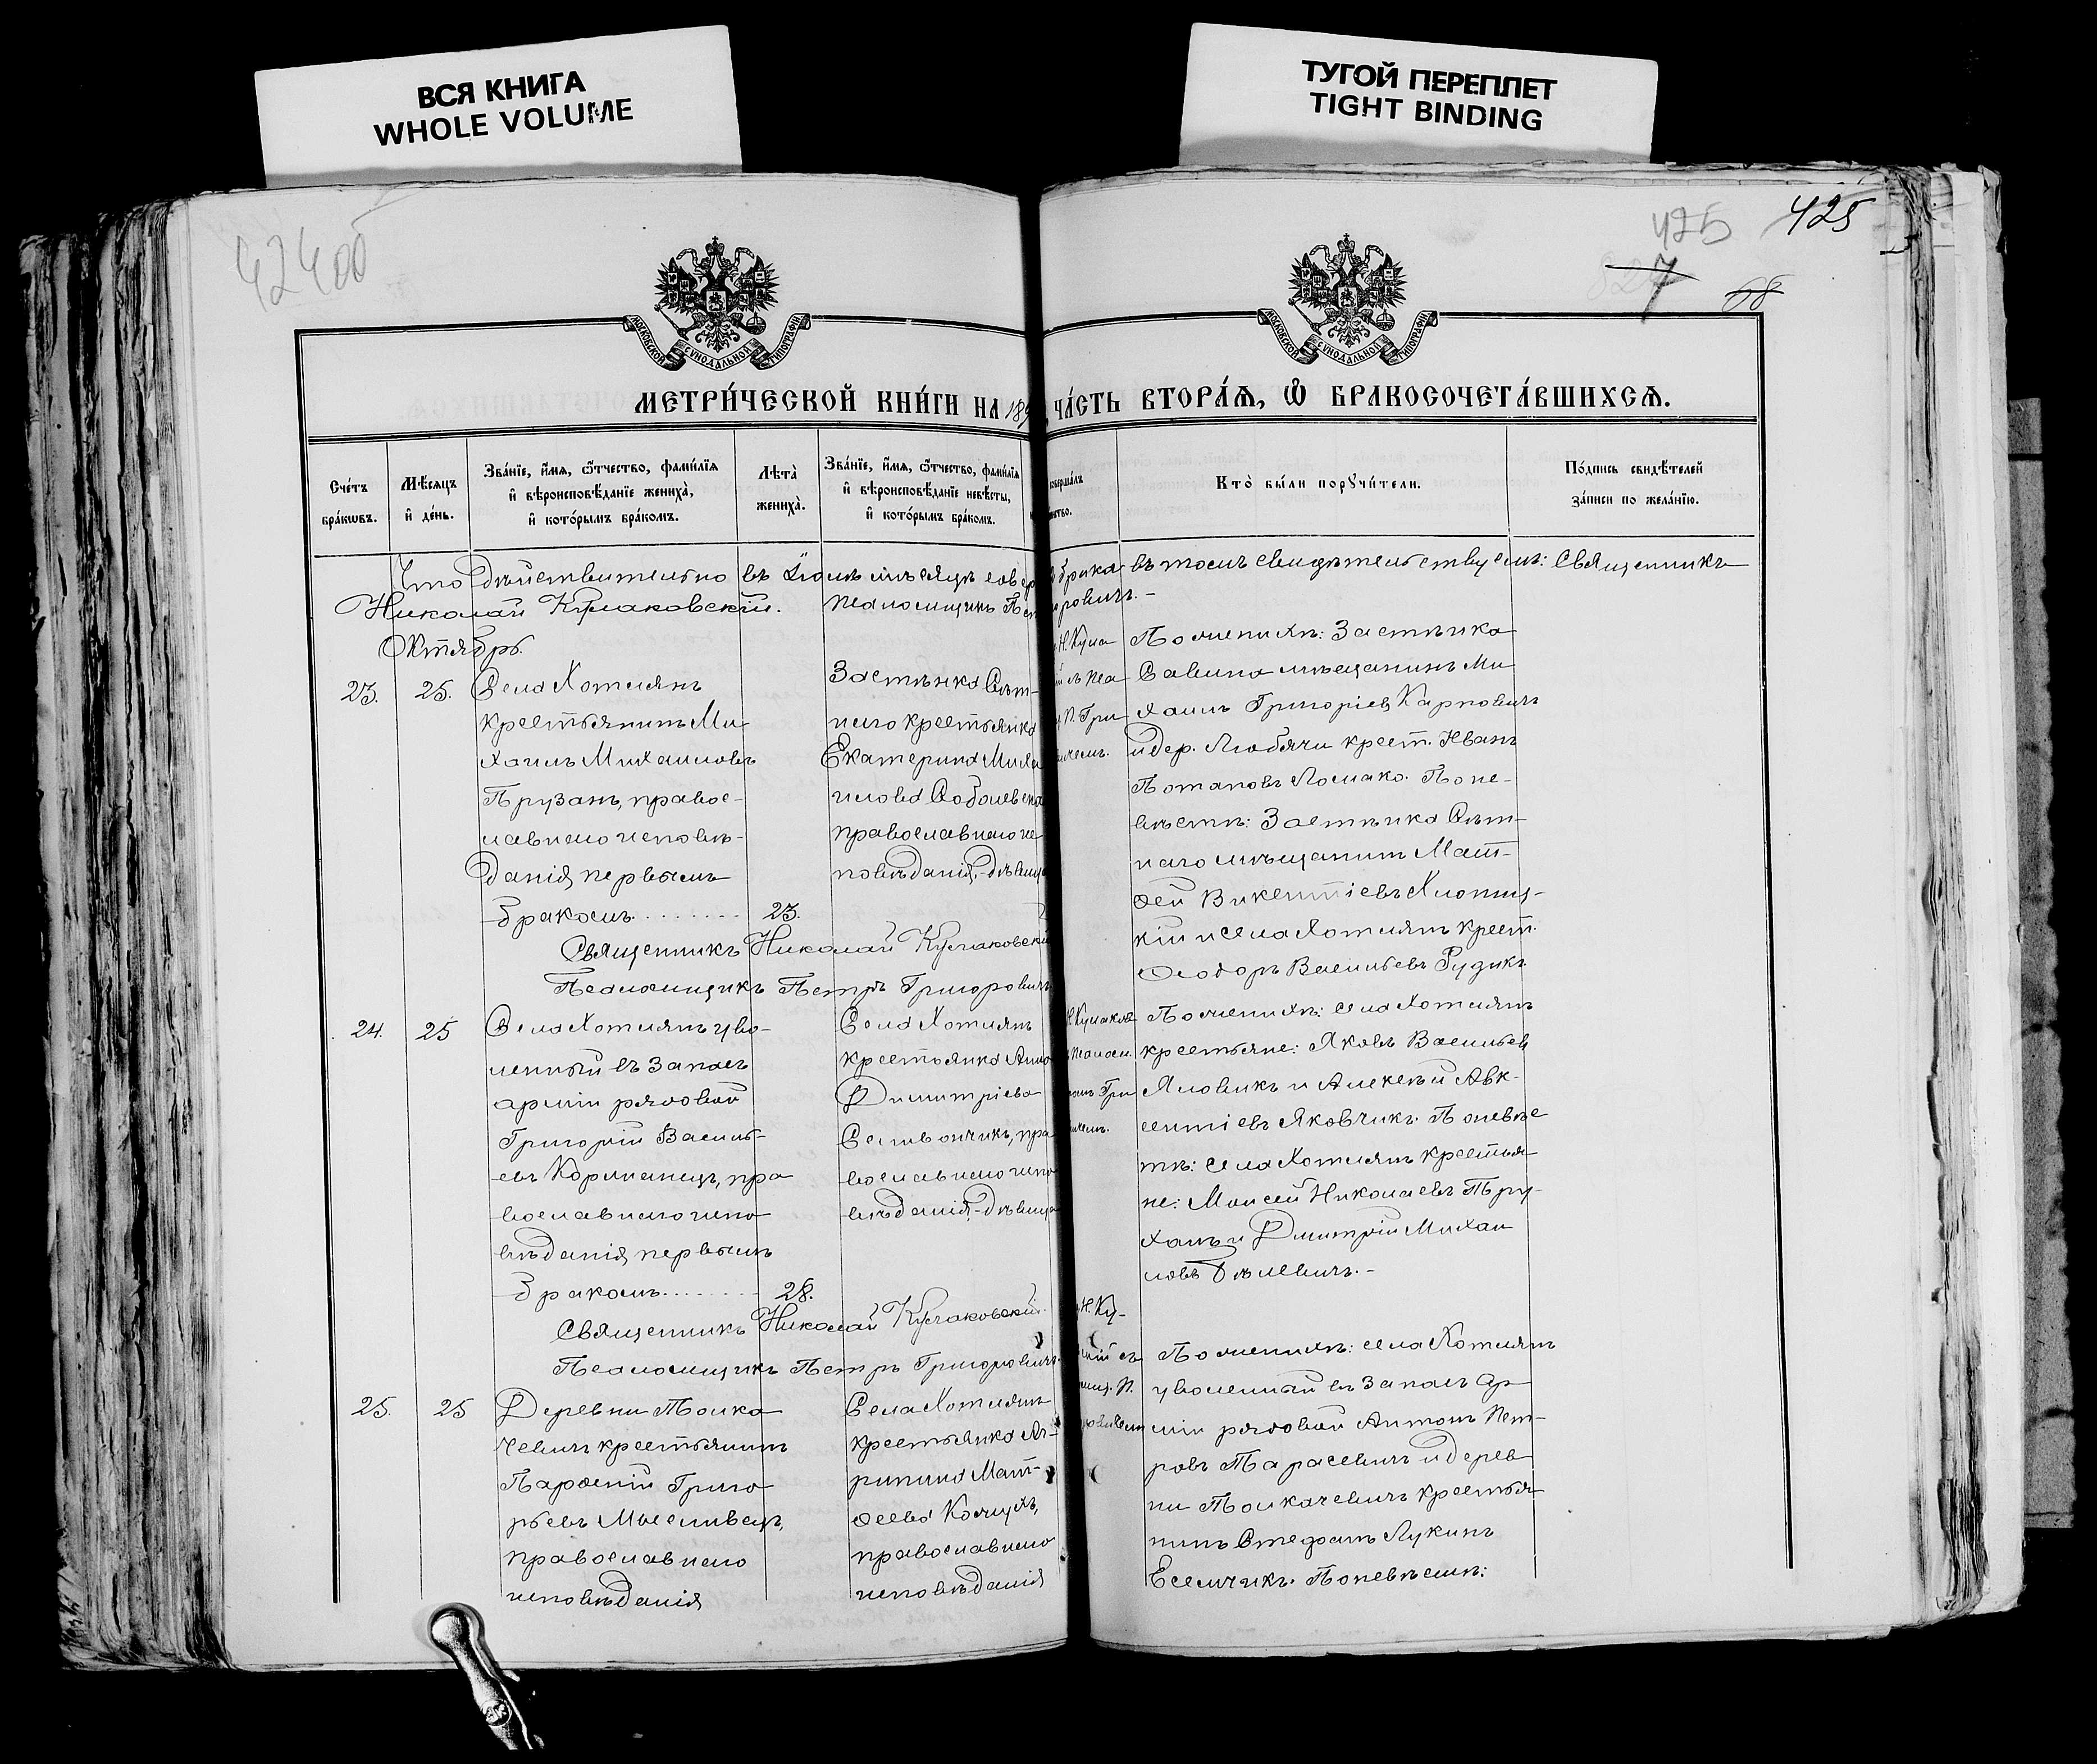 ВСЯ КНИГА
WHOLE VOLUME
ТУГОЙ ПЕРЕПЛЕТ
TIGHT BINDING
42400
425 425
7 68
МОСКОВСКОЙ СѴНОДАЛЬНОЙ ТИПОГРАФІИ
МОСКОВСКОЙ СѴНОДАЛЬНОЙ ТИПОГРАФІИ
МЕТРИ́ЧЕСКОЙ КНИ́ГИ НА 189
ЧА́СТЬ ВТОРА́Ѧ, Ѽ БРАКОСОЧЕТА́ВШИХСѦ.
Сче́тъ
бра́кѡвъ.
Мѣ́сѧцъ
и҆ де́нь.
Зва́нїе, и҆́мѧ, ѻ҆́тчество, фами́лїѧ
и҆ вѣроисповѣ́данїе жениха̀,
и҆ кото́рымъ бра́комъ.
Лѣ́та
жениха̀.
Зва́нїе, и҆́мѧ, ѻ҆́тчество, фами́лїѧ
и҆ вѣроисповѣ́данїе невѣ́сты,
и҆ кото́рымъ бра́комъ.
Кто̀ бы́ли порꙋчи́тели.
По́дпись свидѣ́телей
за́писи по жела́нїю.
Что дѣйствительно въ Іюлѣ мѣсяцѣ совер
брака въ томъ свидѣтельствуемъ: Священникъ
Николай Кулаковскій. Псаломщикъ Пет
Октябрь.
23. 25.
Села Хотлянъ
крестьянинъ Ми
хаилъ Михаиловъ
Прузанъ, правос-
лавнаго исповѣ-
данія, первымъ
бракомъ
23.
Застѣнка Лѣт-
наго крестьянка
Екатерина Миха
илова Соболевска
православнаго ис
повѣданія, дѣвица
Н. Кула
Поженихѣ: Застѣнка
Савина мѣщанинъ Ми
хаилъ Григоріев Карпович
и дер. Любячи крест. Иванъ
Потаповъ Ломако. По не-
вѣстѣ: Застѣнка Лѣт-
наго мѣщанинъ Мат-
ѳей Викентіевъ Хлопиц-
кій и села Хотлянъ крест.
Ѳеодоръ Васильевъ Рудикъ.
Священникъ Николай Кулаковскій
Псаломщикъ Петръ Григорович
24. 25
Села Хотлянъ уво-
ленный въ запасъ
арміи рядовой
Григорій Василь-
евъ Корманецъ, пра
вославнаго испо
вѣданія, первымъ
бракомъ
28.
Села Хотлянъ
крестьянка Анна
Димитріева
Селивончикъ, пра
вославнаго испо
вѣданія, дѣвица
Поженихѣ: села Хотлянъ
крестьяне: Яковъ Васильев
Яловикъ и Алексѣй Авк-
сентіевъ Яковчикъ. По невѣс
тѣ: села Хотлянъ крестья
не: Моисей Николаевъ Пру-
ханъ и Димитрій Михаи
ловъ Бѣлевичъ.
Священникъ Николай Кулаковскій.
Псаломщикъ Петръ Григорович
25. 25
Деревни Толка
чевич крестьянинъ
Парѳеній Григо
рьевъ Мысливецъ,
православнаго
исповѣданія
Села Хотлянъ
крестьянка Аг-
рипина Мат-
ѳеева Кожухъ,
православнаго
исповѣданія
Поженихѣ: села Хотлянъ
уволенный въ запасъ ар
міи рядовой Антонъ Пет-
ровъ Тарасевичъ и дерев
ни Толкачевичъ крестья
нинъ Стефанъ Лукинъ
Есельчикъ. По невѣстѣ: